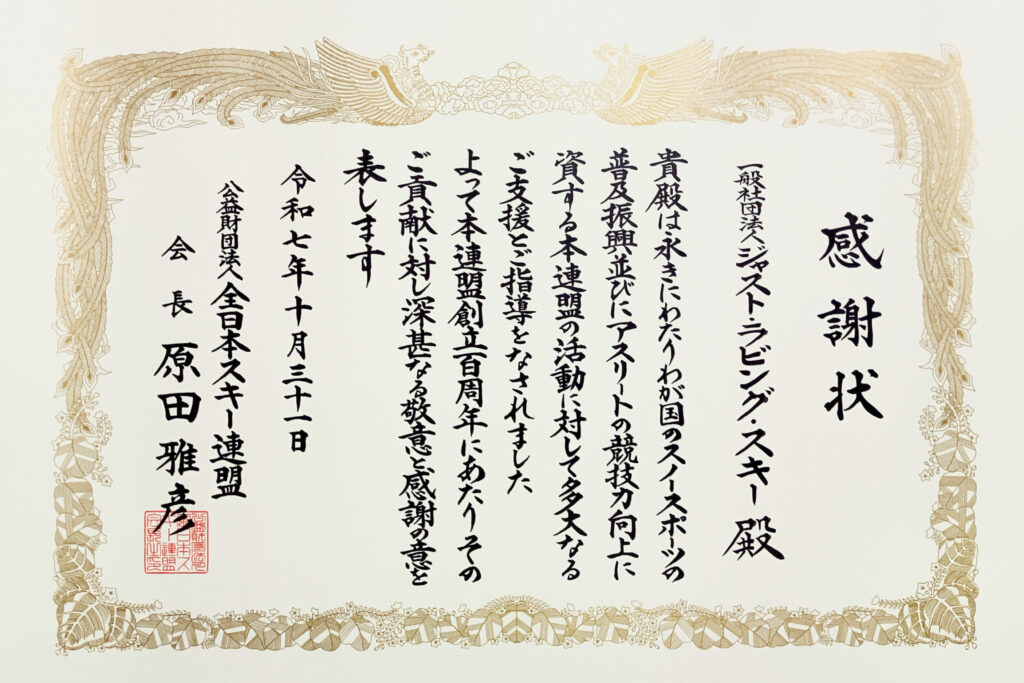 感謝状
一般社団法人ジャスト・ラビング・スキー 殿
貴殿は永きにわたりわが国のスノースポーツの
普及振興並びにアスリートの競技力向上に
資する本連盟の活動に対して多大なる
ご支援とご指導をなされました
よって本連盟創立百周年にあたりその
ご貢献に対し深甚なる敬意と感謝の意を
表します
令和七年十月三十一日
公益財団法人全日本スキー連盟
会長 原田雅彦